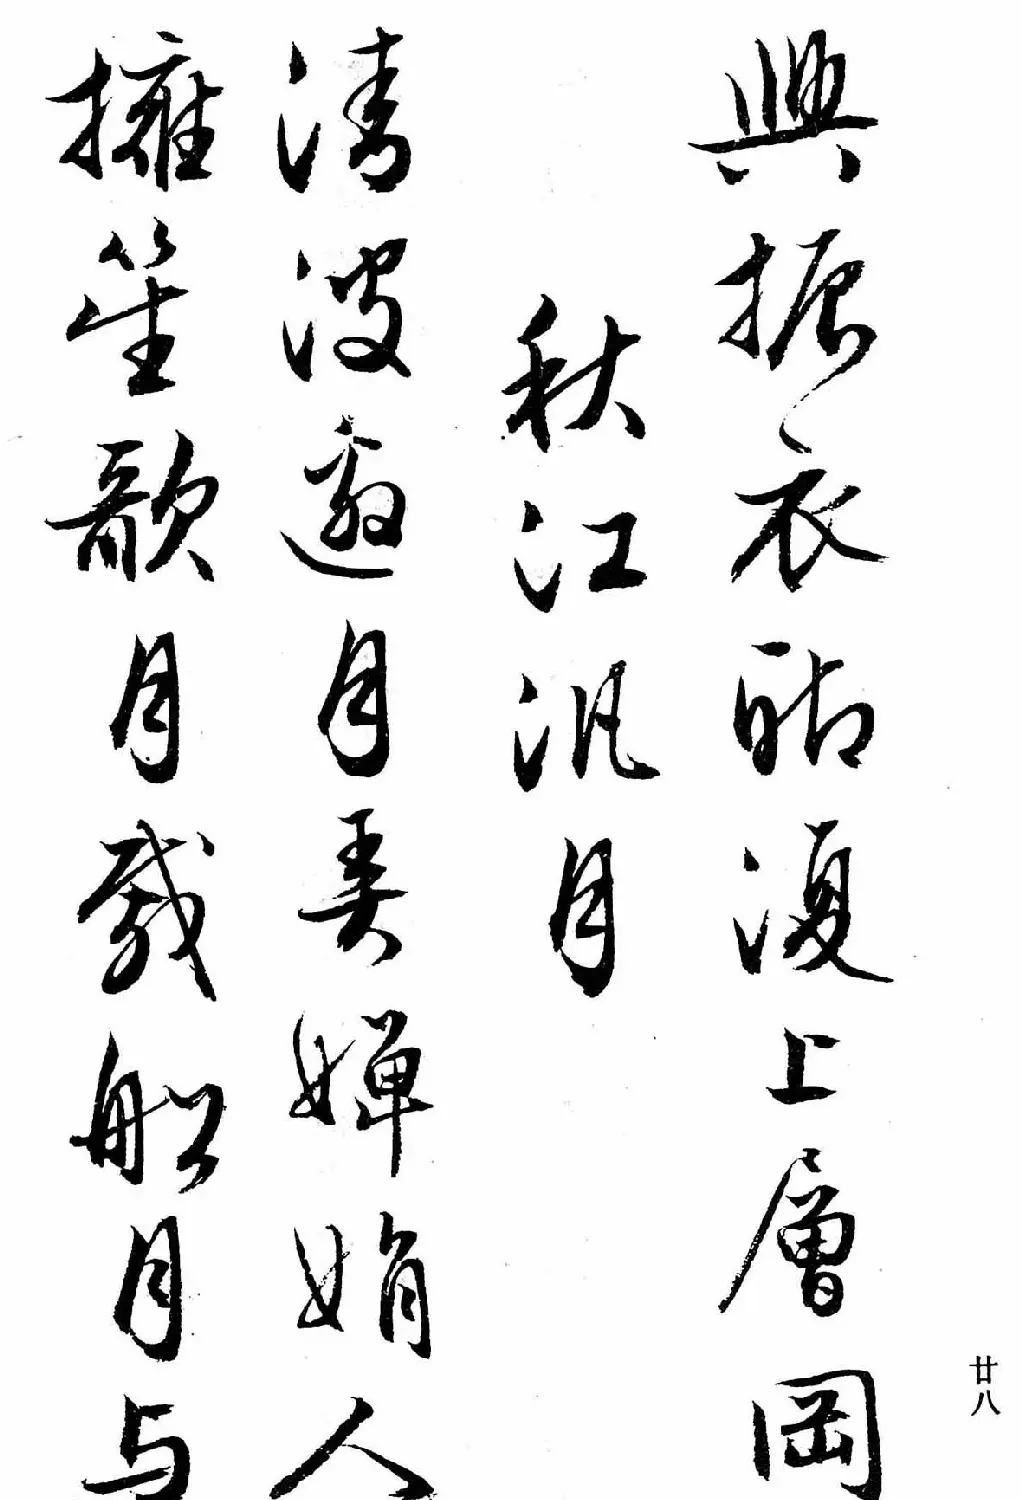 興振衣聊復上層岡
秋江汎月
清波邀月弄嬋娟人
擁笙歌月載船月与
廿八